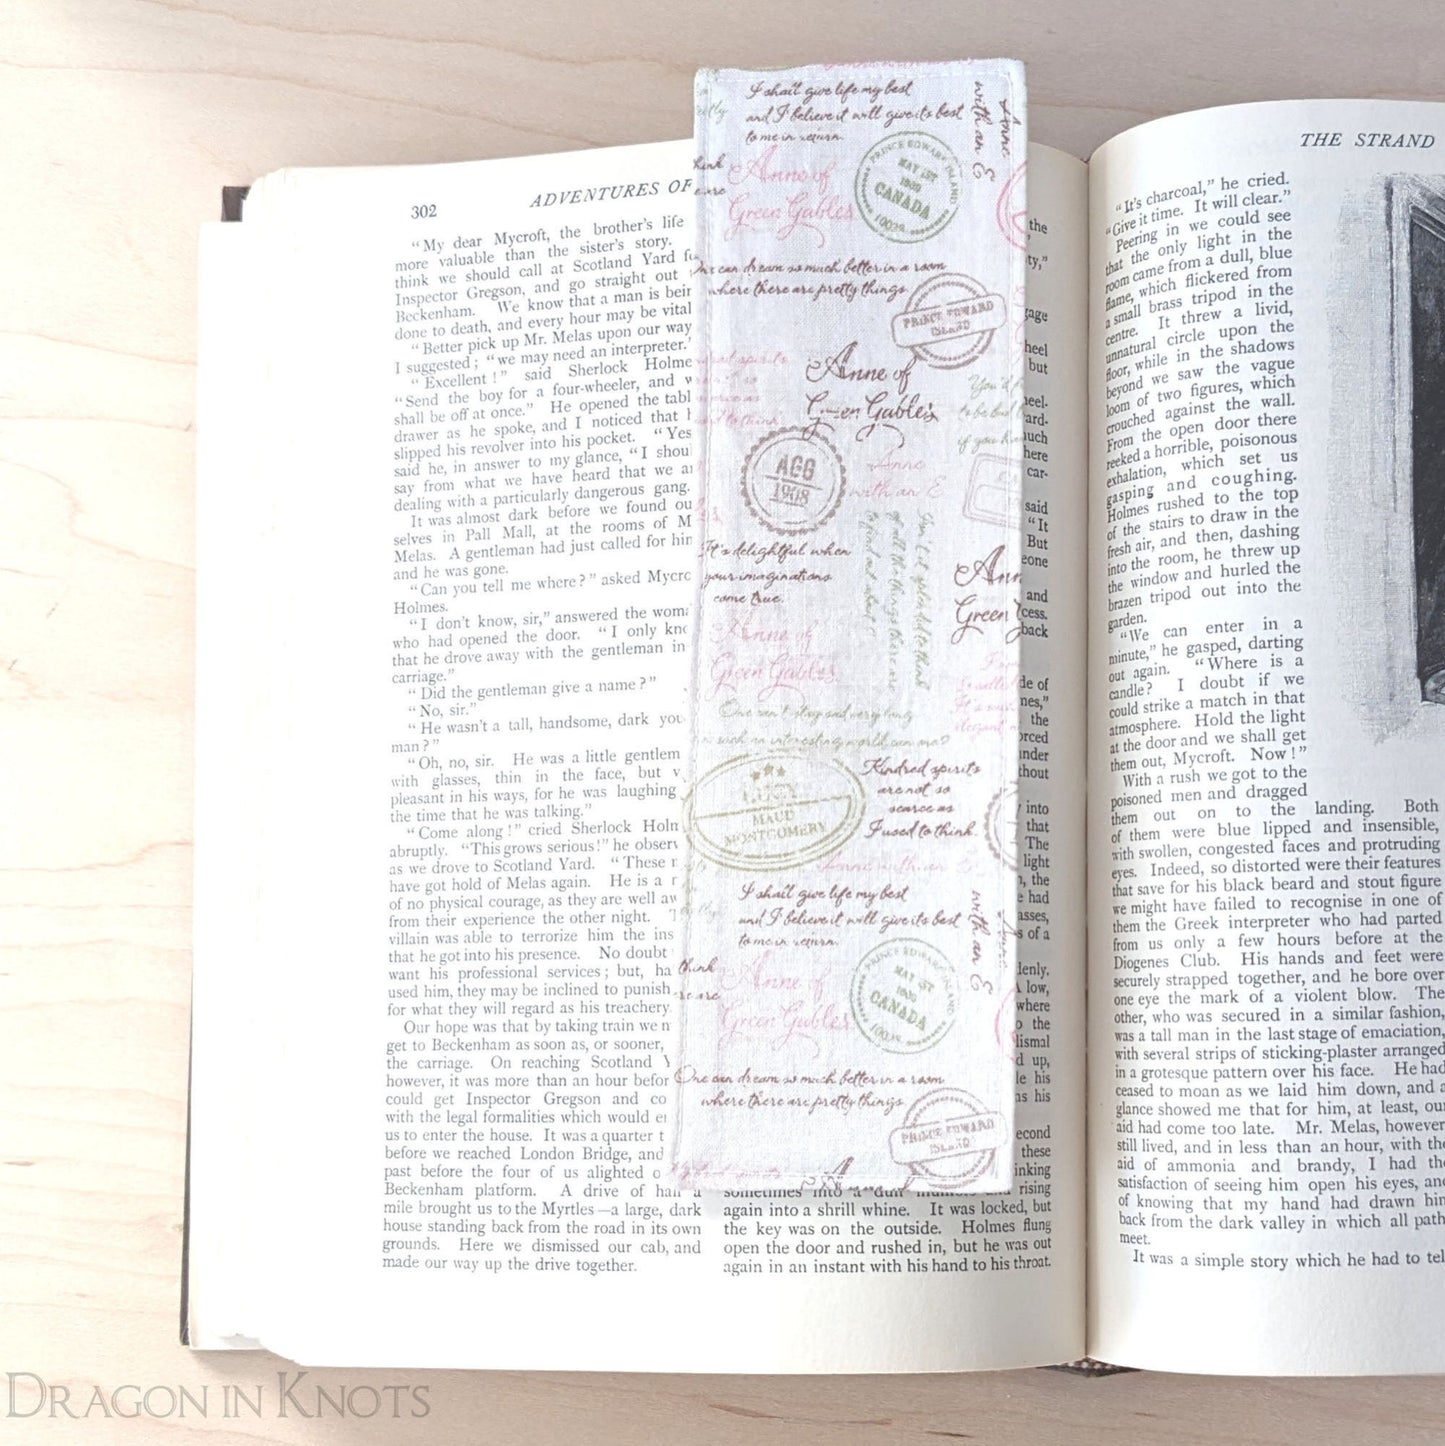 302
ADVENTURES OF
"My dear Mycroft, the brother's life
more valuable than the sister's story.
think we should call at Scotland Yard
Inspector Gregson, and go straight out
Beckenham. We know that a man is
done to death, and every hour may be vital
"Better pick up Mr. Melas upon our way
I suggested; "we may need an interpreter.
"Excellent!" said Sherlock
"Send the boy for a four-wheeler, and
shall be off at once." He opened the
drawer as he spoke, and I noticed that
slipped his revolver into his pocket. "Yes
said he, in answer to my glance, "I
say from what we have heard that we
dealing with a particularly dangerous gang.
It was almost dark before we found
selves in Pall Mall, at the rooms of M
Melas. A gentleman had just called for
and he was gone.
"Can you tell me where?" asked
Holmes.
"I don't know, sir," answered the
who had opened the door. "I only
that he drove away with the gentleman in
carriage."
"Did the gentleman give a name?"
"No, sir."
"He wasn't a tall, handsome, dark
man?"
"Oh, no, sir. He was a little
with glasses, thin in the face, but
pleasant in his ways, for he was laughing
the time that he was talking."
"Come along!" cried Sherlock
abruptly. "This grows serious!" he
as we drove to Scotland Yard. "These
have got hold of Melas again. He is a
of no physical courage, as they are well
from their experience the other night.
villain was able to terrorize him the
that he got into his presence. No doubt
want his professional services; but,
used him, they may be inclined to punish
for what they will regard as his treachery.
Our hope was that by taking train we
get to Beckenham as soon as, or sooner,
the carriage. On reaching Scotland
however, it was more than an hour
could get Inspector Gregson and
with the legal formalities which would
us to enter the house. It was a quarter
before we reached London Bridge, and
past before the four of us alighted
Beckenham platform. A drive of half a
mile brought us to the Myrtles—a large, dark
house standing back from the road in its own
grounds. Here we dismissed our cab, and
made our way up the drive together.
I shall give life my best
and I believe it will give its best
to me in return.
Anne of
Green Gables
PRINCE EDWARD ISLAND
MAY 1ST
CANADA
with an E
One can dream so much better in a room
where there are pretty things
PRINCE EDWARD
ISLAND
Anne of
Green Gables
AGG
1908
Anne
with an E
It's delightful when
your imaginations
come true.
Isn't it splendid to think
of all the things there are
to find out about?
Anne of
Green Gables
One can't stay sad very long
in such an interesting world, can one?
LUCY
MAUD
MONTGOMERY
Kindred spirits
are not so
scarce as
I used to think.
Anne with an E
I shall give life my best
and I believe it will give its best
to me in return.
with an E
Anne of
Green Gables
PRINCE EDWARD ISLAND
MAY 1ST
CANADA
One can dream so much better in a room
where there are pretty things
PRINCE EDWARD
ISLAND
the
but
said
"It
But
and
back
the
into
that
The
light
the
had
of a
low,
where
the
up,
his
his
these
sometimes into a dull rising
again into a shrill whine. It was locked, but
the key was on the outside. Holmes flung
open the door and rushed in, but he was out
again in an instant with his hand to his throat.
THE STRAND
"It's charcoal," he cried.
"Give it time. It will clear."
Peering in we could see
that the only light in the
room came from a dull, blue
flame, which flickered from
a small brass tripod in the
centre. It threw a livid,
unnatural circle upon the
floor, while in the shadows
beyond we saw the vague
loom of two figures, which
crouched against the wall.
From the open door there
reeked a horrible, poisonous
exhalation, which set us
gasping and coughing.
Holmes rushed to the top
of the stairs to draw in the
fresh air, and then, dashing
into the room, he threw up
the window and hurled the
brazen tripod out into the
garden.
"We can enter in a
minute," he gasped, darting
out again. "Where is a
candle? I doubt if we
could strike a match in that
atmosphere. Hold the light
at the door and we shall get
them out, Mycroft. Now!"
With a rush we got to the
poisoned men and dragged
them out on to the landing. Both
of them were blue lipped and insensible,
with swollen, congested faces and protruding
eyes. Indeed, so distorted were their features
that save for his black beard and stout figure
we might have failed to recognise in one of
them the Greek interpreter who had parted
from us only a few hours before at the
Diogenes Club. His hands and feet were
securely strapped together, and he bore over
one eye the mark of a violent blow. The
other, who was secured in a similar fashion,
was a tall man in the last stage of emaciation,
with several strips of sticking-plaster arranged
in a grotesque pattern over his face. He had
ceased to moan as we laid him down, and a
glance showed me that for him, at least, our
aid had come too late. Mr. Melas, however
still lived, and in less than an hour, with the
aid of ammonia and brandy, I had the
satisfaction of seeing him open his eyes, and
of knowing that my hand had drawn him
back from the dark valley in which all path
meet.
It was a simple story which he had to tel
DRAGON IN KNOTS